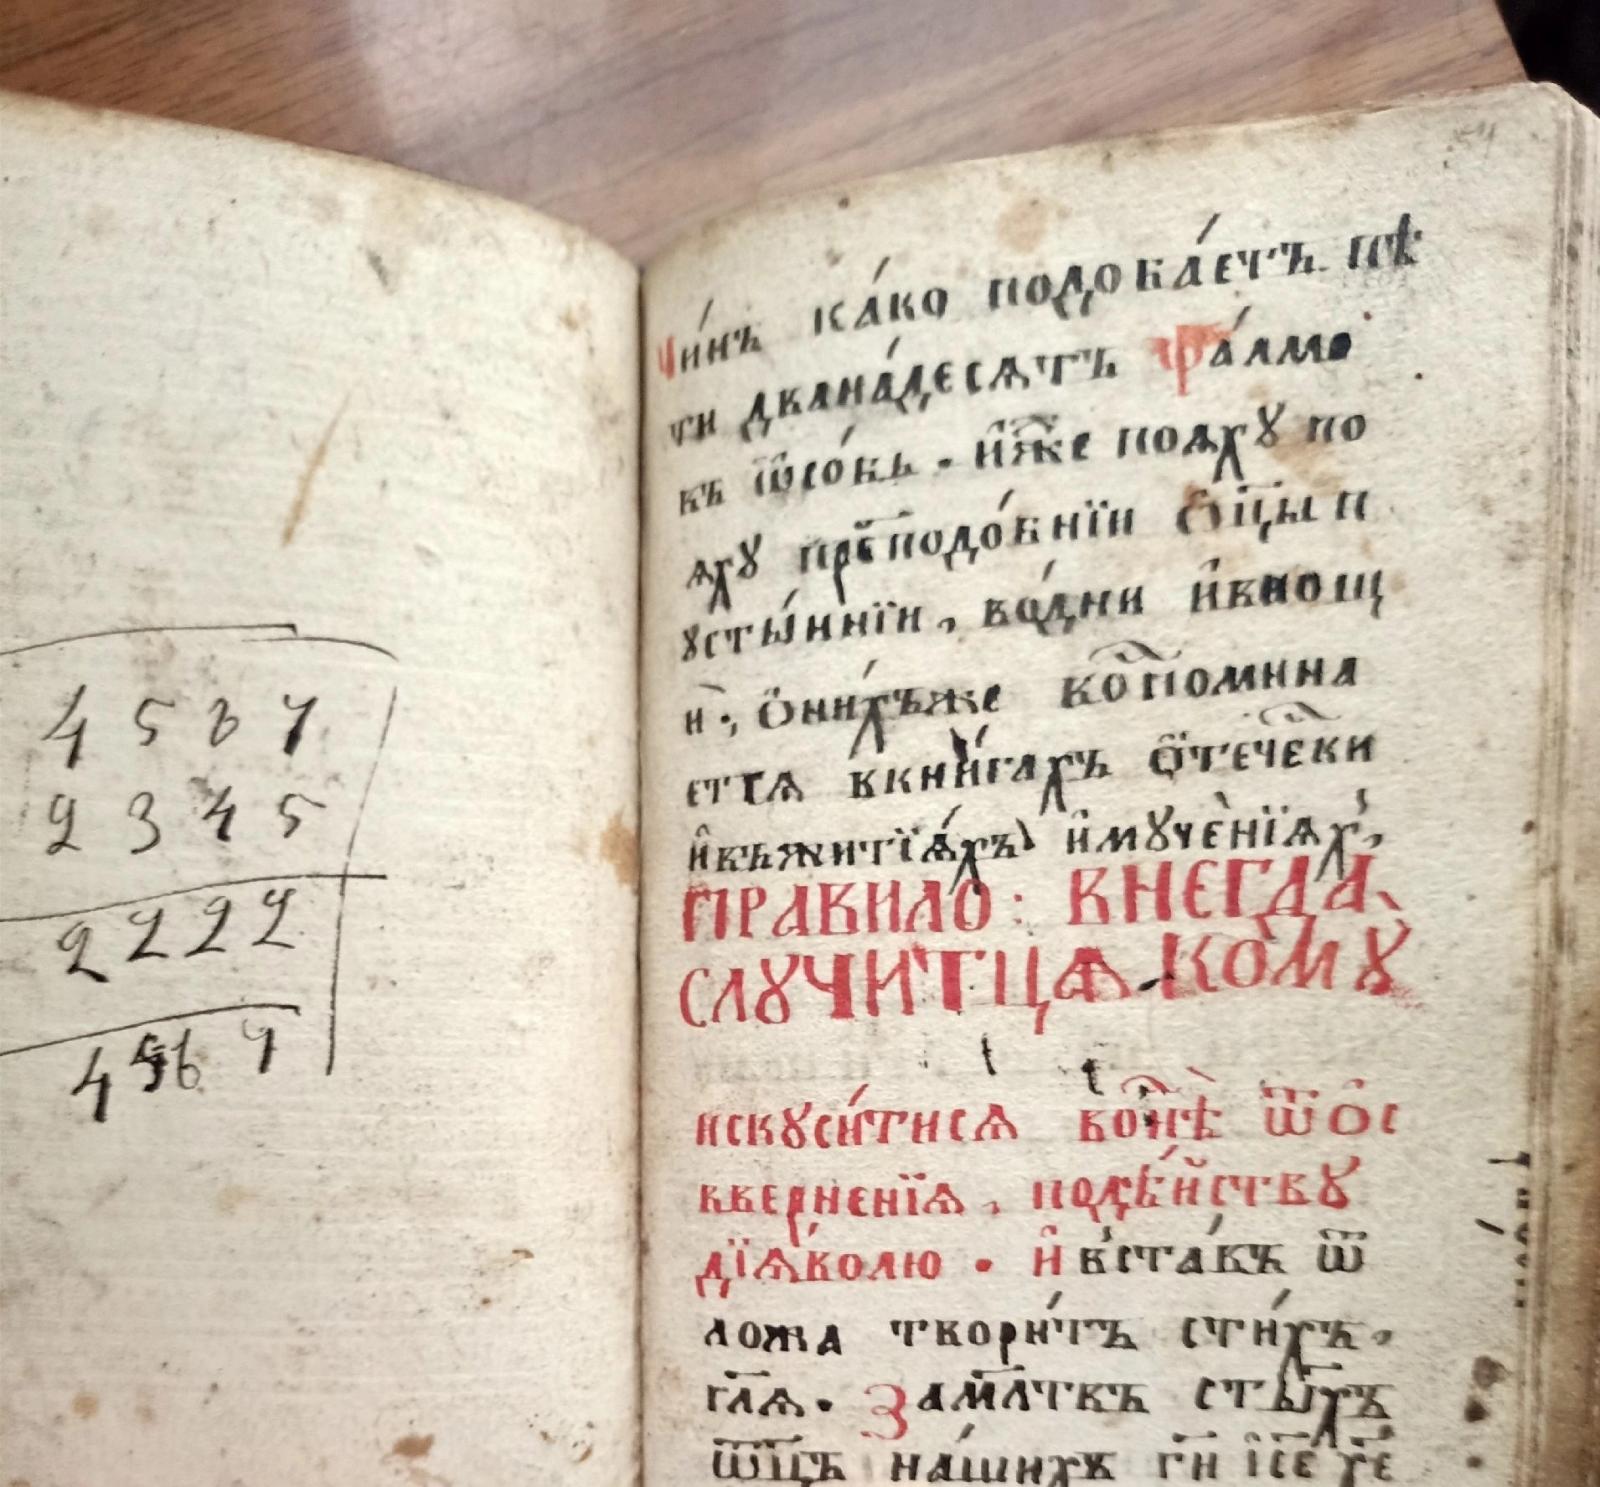 4567
2345
2222
4567
чи́нъ ка́ко подоба́етъ пѣ
ти двана́десѧтъ ѱа́лмо
въ ѿсо́бь . и҆̀же поѧхꙋ по
ѧхꙋ прпⷣо́бнїи ѻ҆ц҃ы п
ꙋсты́ннїи , во́дни и҆внощ
ѝ ., ѻ҆ни́хъже во̑помина
етсѧ вкни́гахъ ѻ҆те́чески
и҆въжитїѧ́хъ и҆мꙋче́нїѧх,
ПРАВИЛО : ВНЕГДА̀
СЛꙊЧИТЦѦ КОМꙊ
искꙋси́тисѧ во снѣ̀ ѿ ѻ҆с
квернеnїѧ , подѣ́йствꙋ
дїѧ́волю . и҆ вста́въ ѿ
ложа твори́тъ сти́хъ ,
гл҃ѧ . Замл҃твъ ст҃ы́хъ
ѿц҃ъ на́шихъ гд҃и і҆с҃е хр҃е